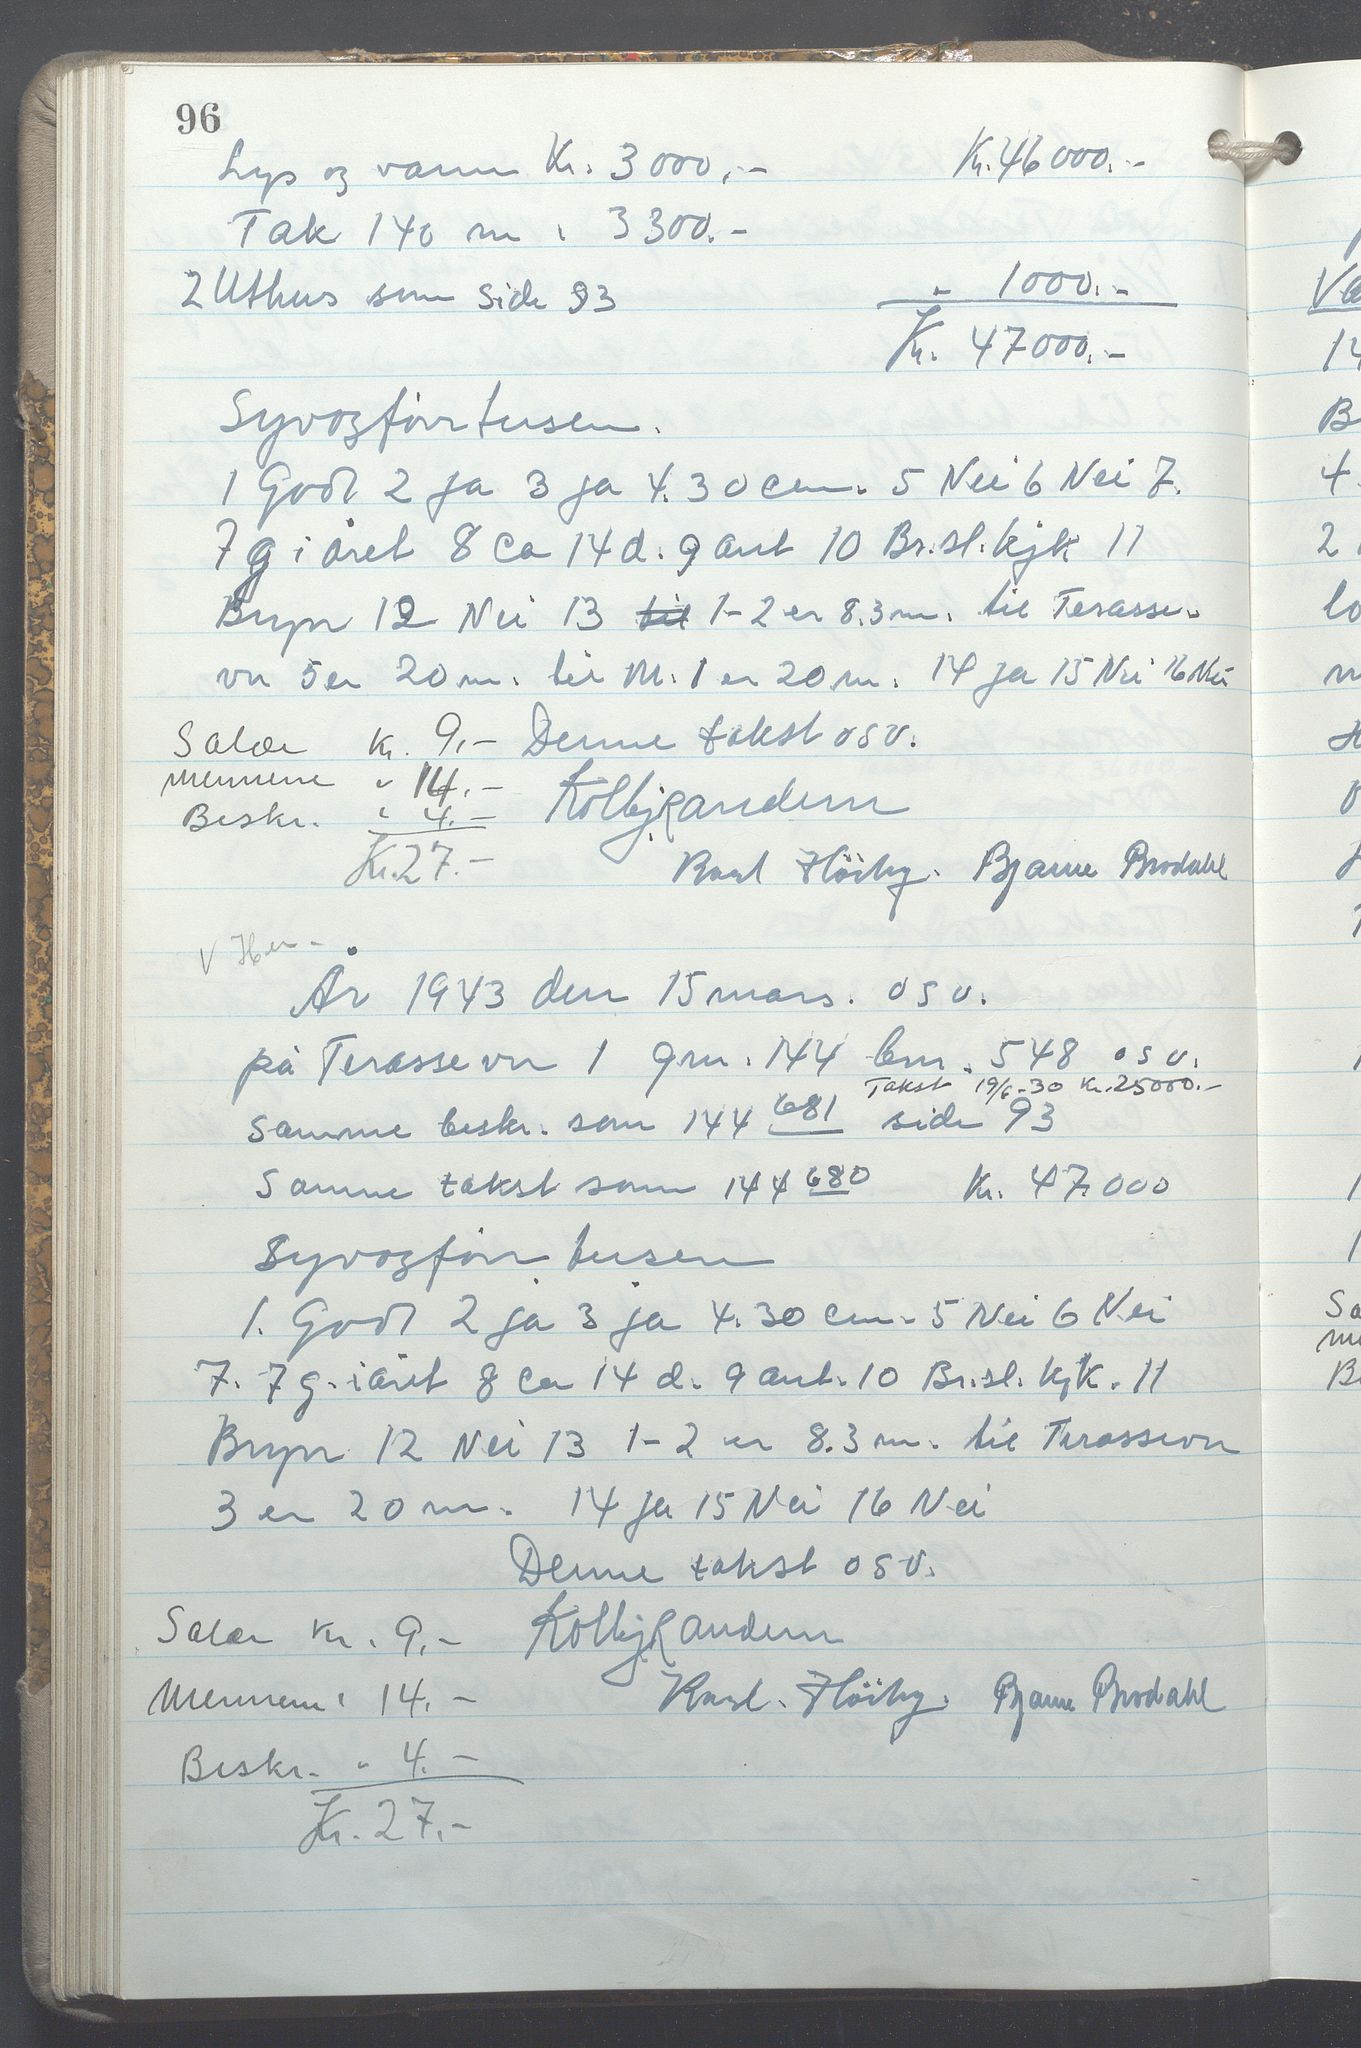 96
Lys og vann Kr. 3000,-   Kr. 46000.-
Tak 140 m " 3300.-
2 Uthus som side 93   " 1000.-
Kr. 47000.-
Syvogførrtusen.
1 Godt 2 ja 3 ja 4. 30 cm. 5 Nei 6 Nei 7.
7 g i året 8 ca 14 d. 9 ant 10 Br.sl.kjk 11
Bryn 12 Nei 13 1-2 er 8.3 m. til Terasse-
vn 5 er 20 m. til M. 1 er 20 m. 14 ja 15 Nei 16 Nei
Salær Kr. 9.-   Denne takst osv.
Mennene " 14.-   Kolbj Randem
Beskr. " 4.-
Kr. 27.-   Karl Høiby. Bjarne Brodahl
V
År 1943 den 15 mars. osv.
på Terasse vn 1 gnr. 144 bnr. 548 osv.
Takst 19/6-30 Kr. 25000.-
Samme beskr. som 144 681 side 93
Samme takst som 144 680   Kr. 47.000
Syvogførr tusen
1. Godt 2 ja 3 ja 4. 30 cm. 5 Nei 6 Nei
7. 7 g. i året 8 ca 14 d. 9 ant. 10 Br.sl. kjk. 11
Bryn 12 Nei 13 1-2 er 8.3 m. til Terassevn
3 er 20 m. 14 ja 15 Nei 16 Nei
Denne takst osv.
Salær Kr. 9.-   Kolbj Randem
Mennene " 14.-   Karl. Høiby. Bjarne Brodahl
Beskr. " 4.-
Kr. 27.-